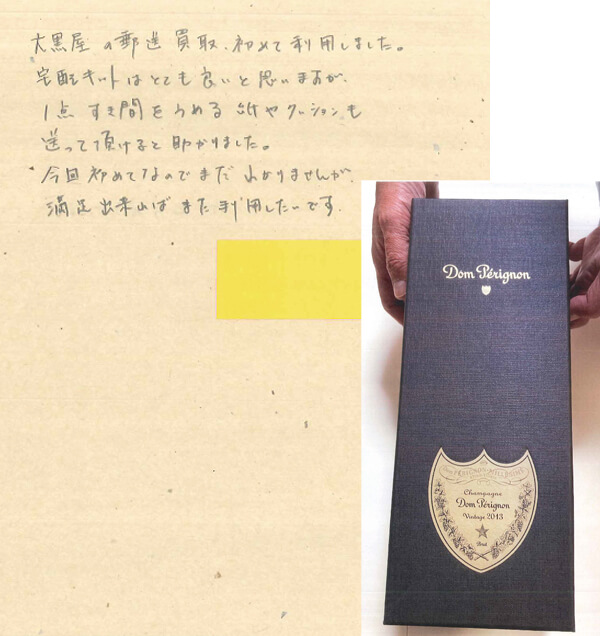 大黒屋の郵送買取、初めて利用しました。
宅配キットはとても良いと思いますが、
1点すき間をうめる紙やクッションも
送って頂けると助かりました。
今回初めてなのでまだわかりませんが
満足出来ればまた利用したいです。
Dom Pérignon
Champagne
Dom Pérignon
Vintage 2013
Brut